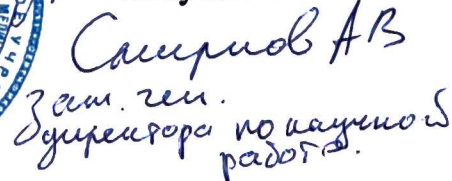 Смирнов АВ
Зам. ген.
директора по научной
работе.